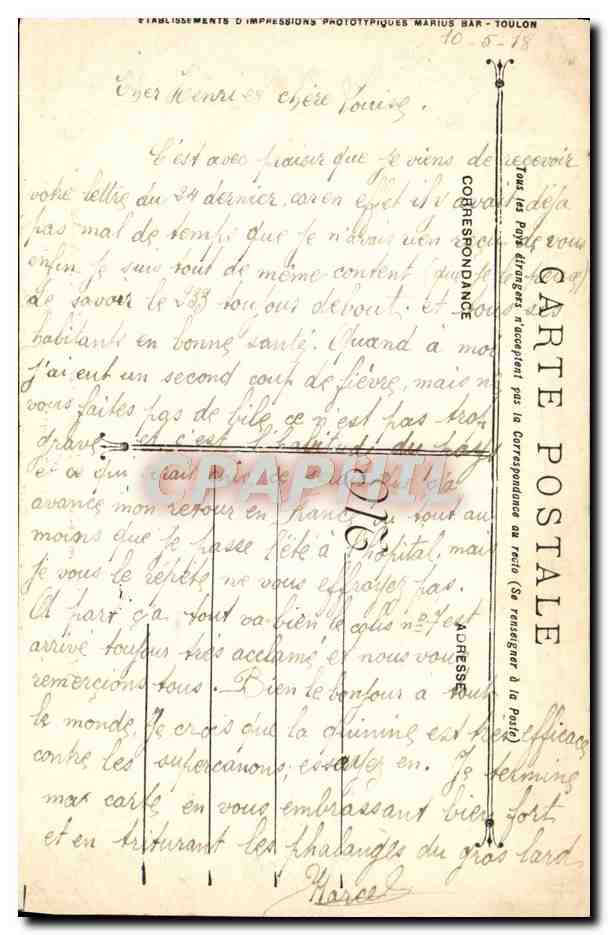 ETABLISSEMENTS D'IMPRESSIONS PHOTOTYPIQUES MARIUS BAR - TOULON
10-6-18
Cher Henri et chère Louise.
C'est avec plaisir que je viens de recevoir
votre lettre du 24 dernier car en effet il y avait déjà
pas mal de temps que je n'avais rien reçu de vous
enfin je suis tout de même content
de savoir le 233 toujours debout et tous ses
habitants en bonne santé. Quand à moi
j'ai eut un second coup de fièvre, mais ne
vous faites pas de bile ce n'est pas trop
grave et c'est l'habitude du pays
et ce qui
avance mon retour en France ou tout au
moins que je passe l'été à l'hôpital, mais
je vous le répète ne vous effrayez pas.
A part ça tout va bien le colis no 7 est
arrivé toujours très acclamé et nous vous
remercions tous. Bien le bonjour à tout
le monde. Je crois que la quinine est très efficace
contre les supercanons, essayez en. Je termine
ma carte en vous embrassant bien fort
et en triturant les phalanges du gros lard
Marcel
CARTE POSTALE
Tous les Pays étrangers n'acceptent pas la Correspondance au recto (Se renseigner à la Poste)
CORRESPONDANCE
ADRESSE
CPAPHIL